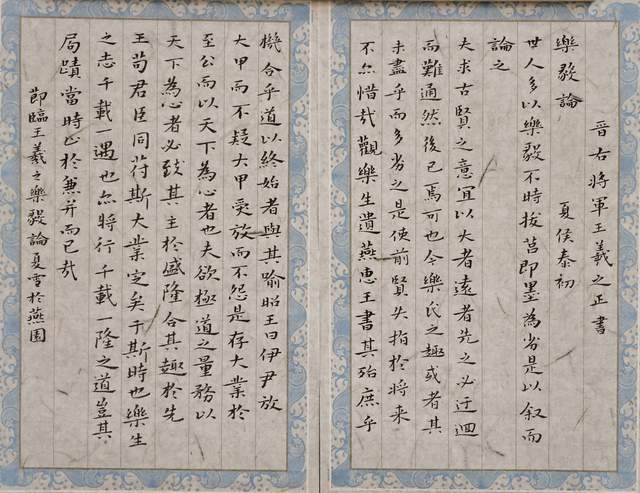 晉右將軍王羲之正書
樂毅論 夏侯泰初
世人多以樂毅不時拔莒即墨為劣是以叙而
論之
夫求古賢之意宜以大者遠者先之必迂迴
而難通然後已焉可也今樂氏之趣或者其
未盡乎而多劣之是使前賢失指於將來
不亦惜哉觀樂生遺燕惠王書其殆庶乎
機合乎道以終始者與其喻昭王曰伊尹放
大甲而不疑大甲受放而不怨是存大業於
至公而以天下為心者也夫欲極道之量務以
天下為心者必致其主於盛隆合其趣於先
王苟君臣同苻斯大業定矣于斯時也樂生
之志千載一遇也亦將行千載一隆之道豈其
局蹟當時止於兼并而已哉
節臨王羲之樂毅論夏雪於燕園